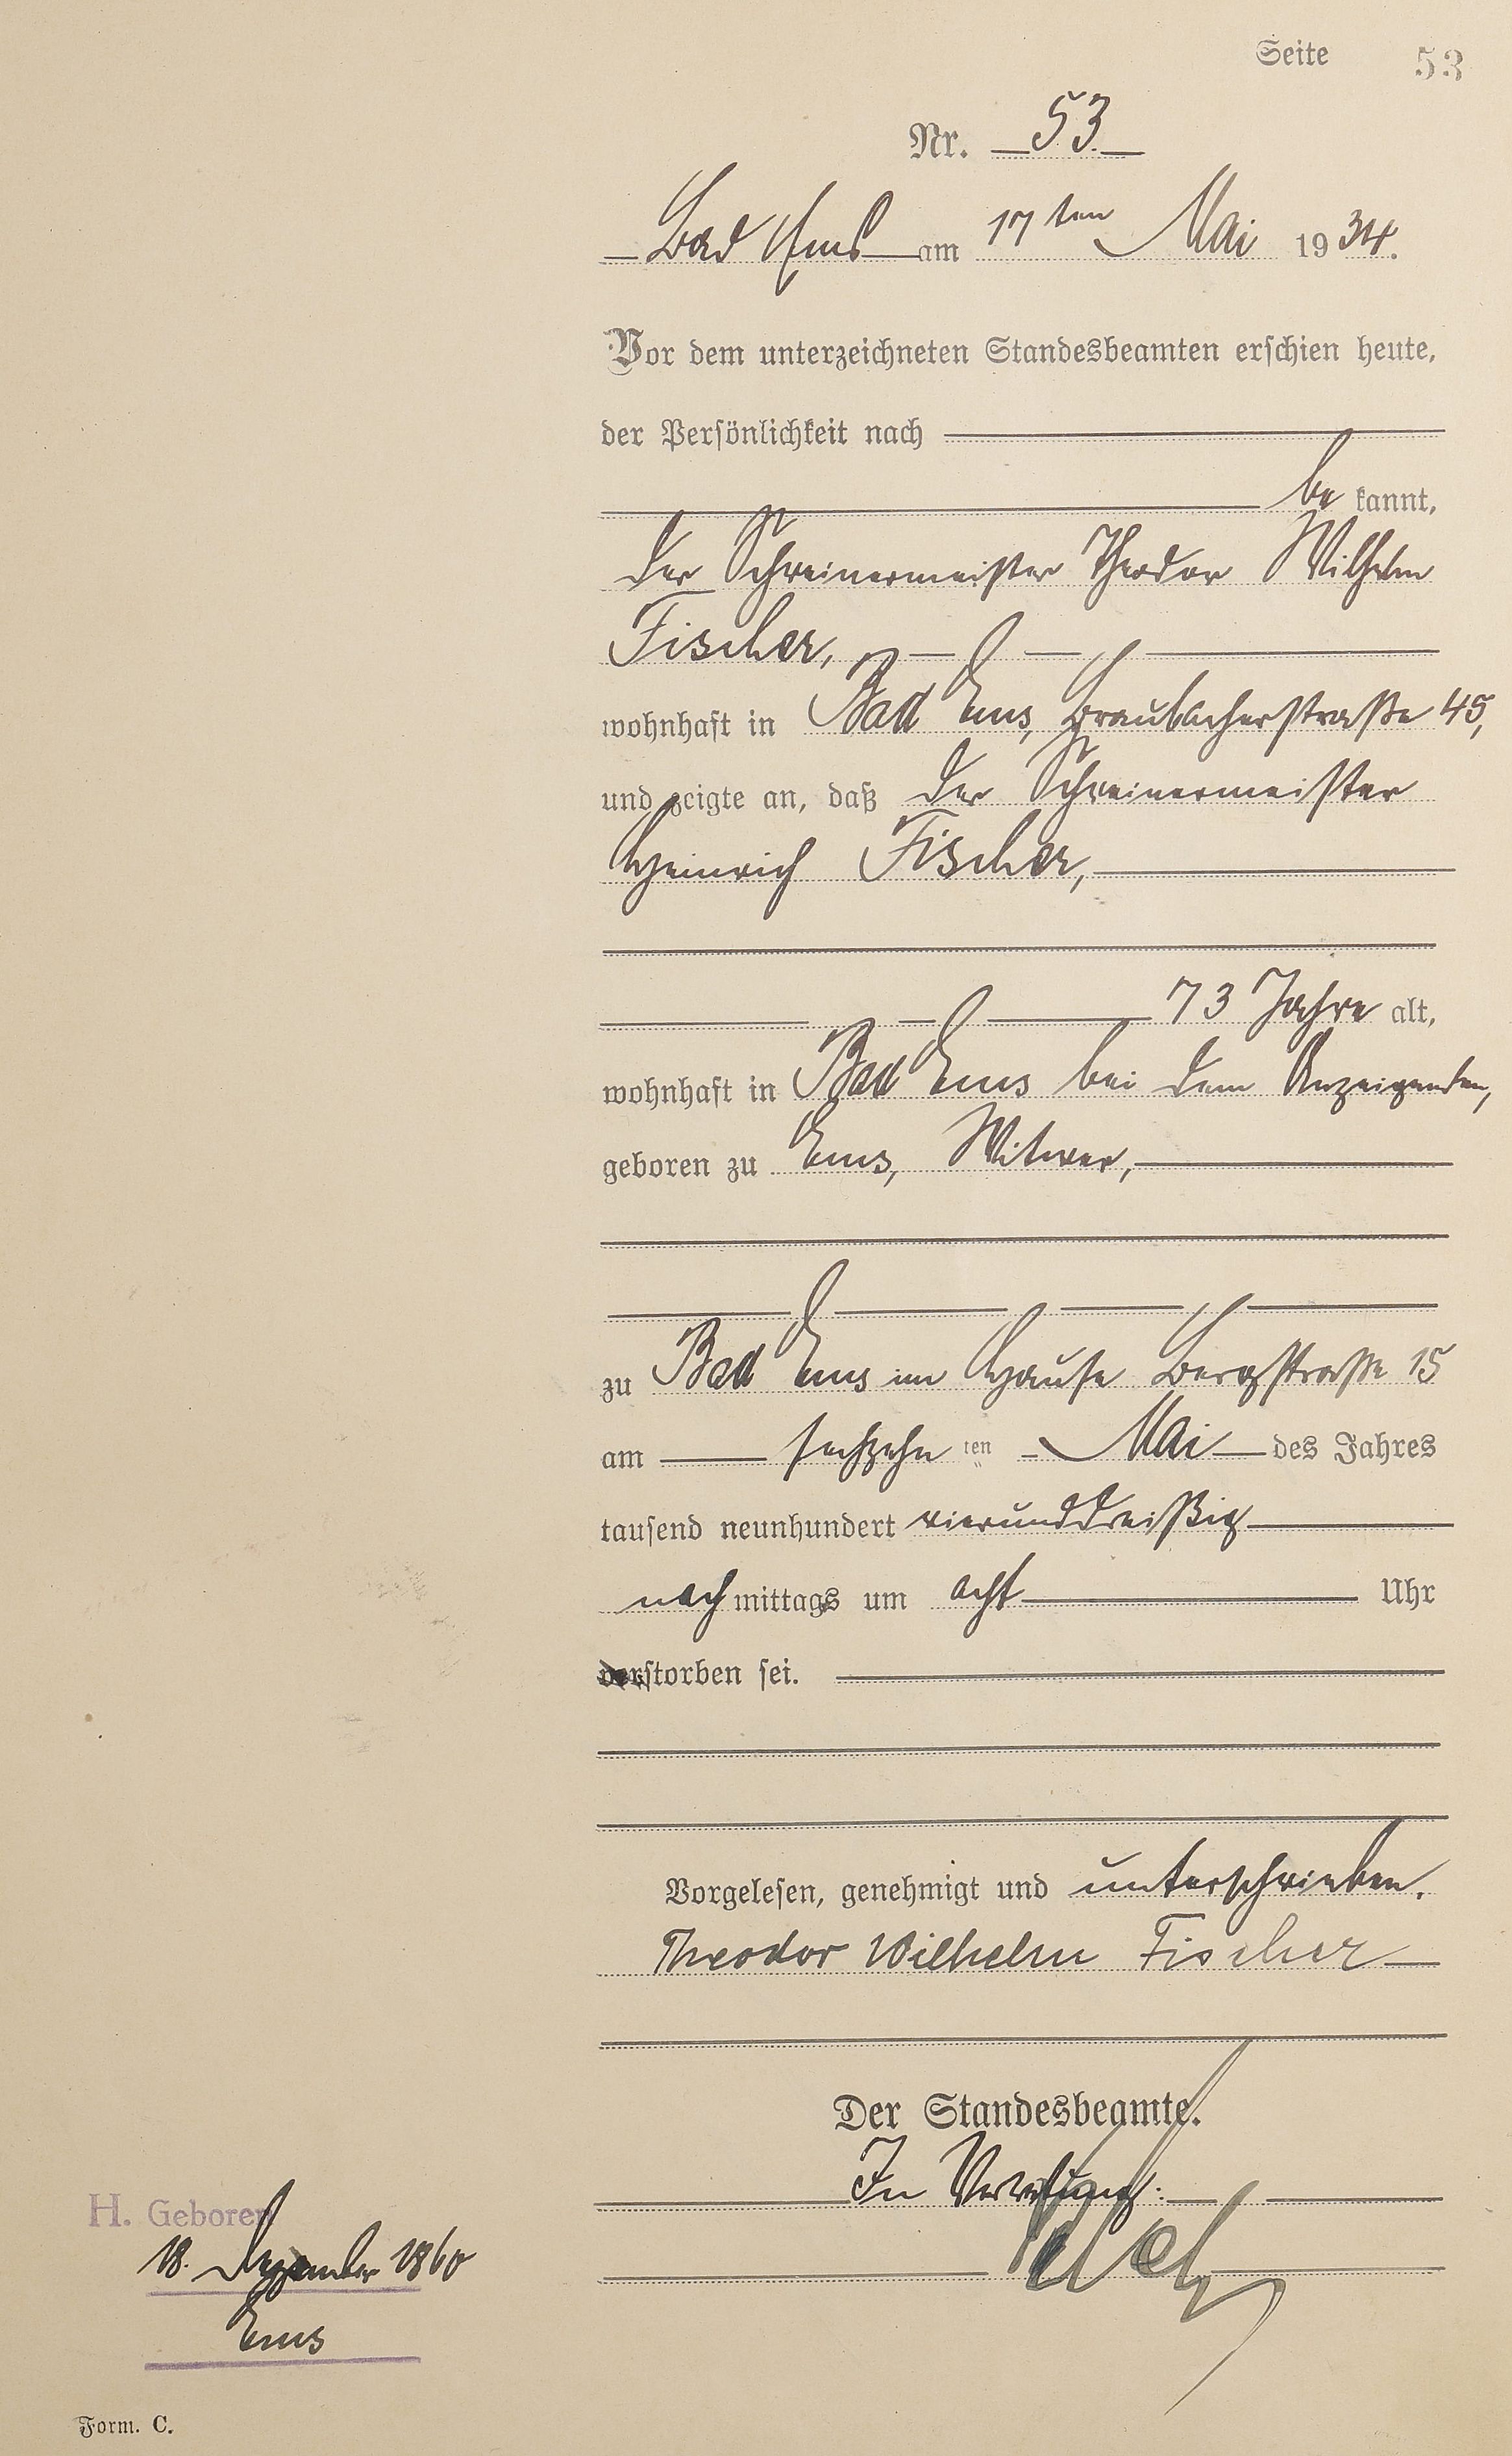 Seite 53
Nr. 53.
Bad Ems am 17ten Mai 1934.
Vor dem unterzeichneten Standesbeamten erschien heute,
der Persönlichkeit nach
be kannt,
der Schreinermeister Theodor Wilhelm
Fischer,
wohnhaft in Bad Ems, Braubacherstraße 45,
und zeigte an, daß der Schreinermeister
Heinrich Fischer,
73 Jahre alt,
wohnhaft in Bad Ems bei dem Anzeigenden,
geboren zu Ems, Witwer,
zu Bad Ems im Hause Bergstraße 15
am sechzehn ten Mai des Jahres
tausend neunhundert vierunddreißig
nach mittags um acht Uhr
verstorben sei.
Vorgelesen, genehmigt und unterschrieben.
Theodor Wilhelm Fischer
Der Standesbeamte.
In Vertretung:
H. Geboren
18. Dezember 1860
Ems
Form. C.